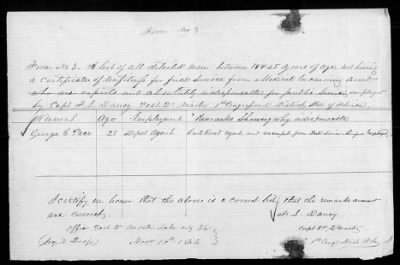 Form No 3
Form No 3. A list of all detailed men between 18 & 45 years of age not having
a certificate of unfitness for field Service from Medical Examining Board
who are experts and absolutely indispensable for public Service, employed
by Capt F. L. Dancy 1st Congressional District, State of Florida
Names Age Employment Remarks Showing why indispensable
George C Pace 28 Depot Agent Rail Road Agent, and exempt from field Service
I certify on honor that the above is a correct list, that the remarks annexed
are correct F. L. Dancy
Office Lake City Capt
Nov 10th 1864 1st Congl Dist Fla